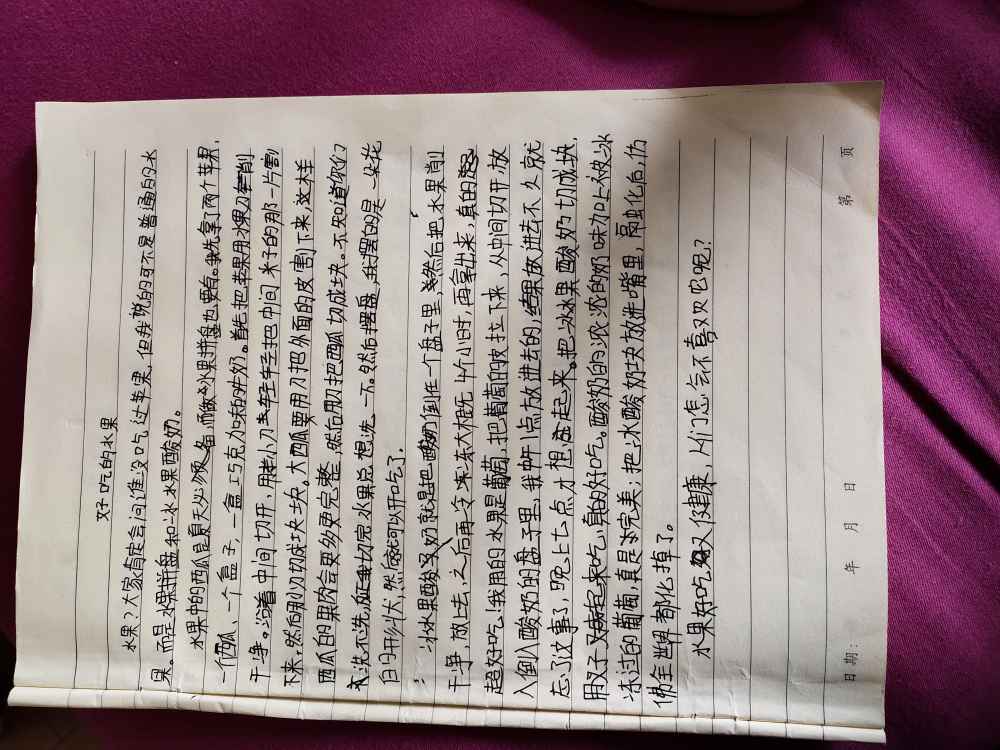 好吃的水果
水果?大家肯定会问谁没吃过苹果,但我说的可不是普通的水
果。而是水果拼盘和冰水果酸奶。
水果中的西瓜是夏天必须备,而做水果拼盘也要有。我先拿了两个苹果,
一个西瓜、一个盒子,一盒巧克力味的牛奶。首先把苹果用水果刀削
干净。沿着中间切开,用小刀轻轻把中间籽的那一片割
下来,然后用小刀切成块块。大西瓜要用刀把外面的皮割下来,这本样
西瓜的果肉会更完整,然后用刀把西瓜切成块。不知道你们
洗不洗,反正我切完水果总想洗一下。然后摆盘,我摆的是一朵花
的形状,然后就可以开吃了。
冰水果酸奶就是把酸奶倒在一个盘子里,然后把水果削
干争,放上去,之后再冷冻大概4个小时,再拿出来,真的
超好吃!我用的水果是葡萄,把葡萄的皮拉下来,从中间切开,放
入倒入酸奶的盘子里,我中午1点放进去的,结果放进去不久就
忘了这事了,晚上七点才想起来。把冰水果酸奶切成块,
用叉子叉起来吃,真的好吃。酸奶的浓浓的奶味加上被冰
冻过的葡萄,真是完美;把冰酸奶块放进嘴里,融化后,仿
佛全世界都化掉了。
水果好吃又健康,人们怎会不喜欢它呢?
日期: 年 月 日 第 页